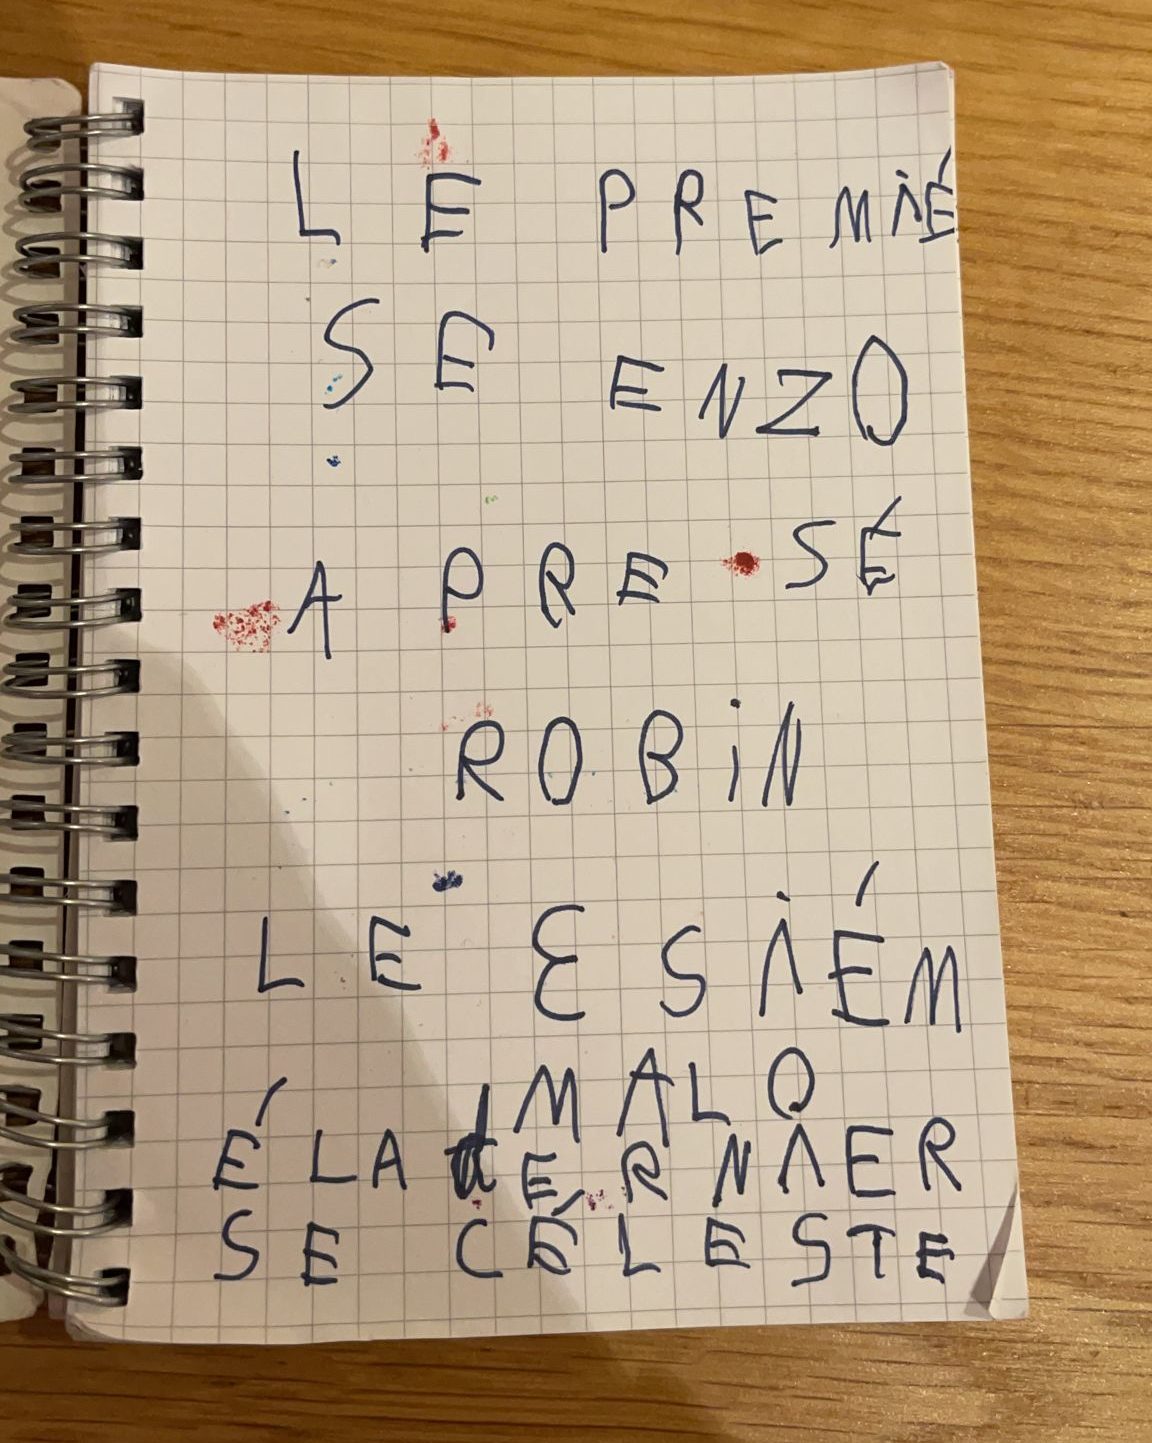 LE PREMIÉ
SE ENZO
APRE SÉ
ROBiN
LE ESIÉM
MALO
É LA dERNIER
SE CÉLESTE